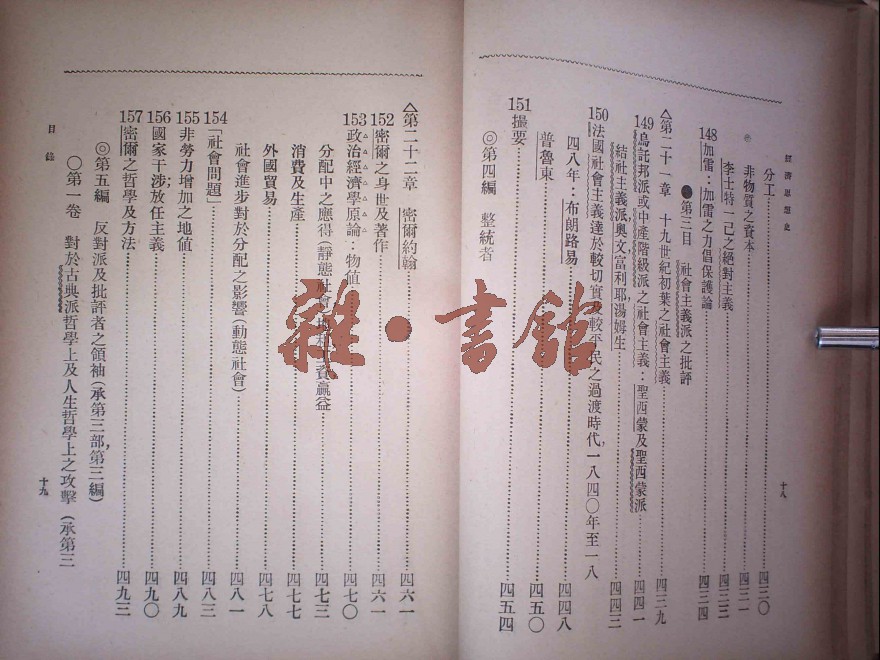 經濟思想史
分工……四三〇
非物質之資本……四三一
李士特一己之絕對主義……四三三
148加雷：加雷之力倡保護論……四三四
●第三目 社會主義派之批評
△第二十一章 十九世紀初葉之社會主義……四三九
149烏託邦派或中產階級派之社會主義：聖西蒙及聖西蒙派……四四一
結社主義派奧文，富利耶，湯姆生……四四三
150法國社會主義達於較切實及較平民之過渡時代，一八四〇年至一八
四八年：布朗路易……四四八
普魯東……四五〇
151撮要……四五四
◎第四編 整統者
十八
△第二十二章 密爾約翰……四六一
152密爾之身世及著作……四六一
153政治經濟學原論：物值……四七〇
分配中之應得（靜態社會）
贏益……四七三
消費及生產……四七七
外國貿易……四七八
社會進步對於分配之影響（動態社會）……四八一
154「社會問題」……四八三
155非勞力增加之地値……四八九
156國家干涉放任主義……四九〇
157密爾之哲學及方法……四九三
◎第五編 反對派及批評者之領袖（承第三部，第三編）
〇第一卷 對於古典派哲學上及人生哲學上之攻擊（承第三
目錄
十九
雜·書館